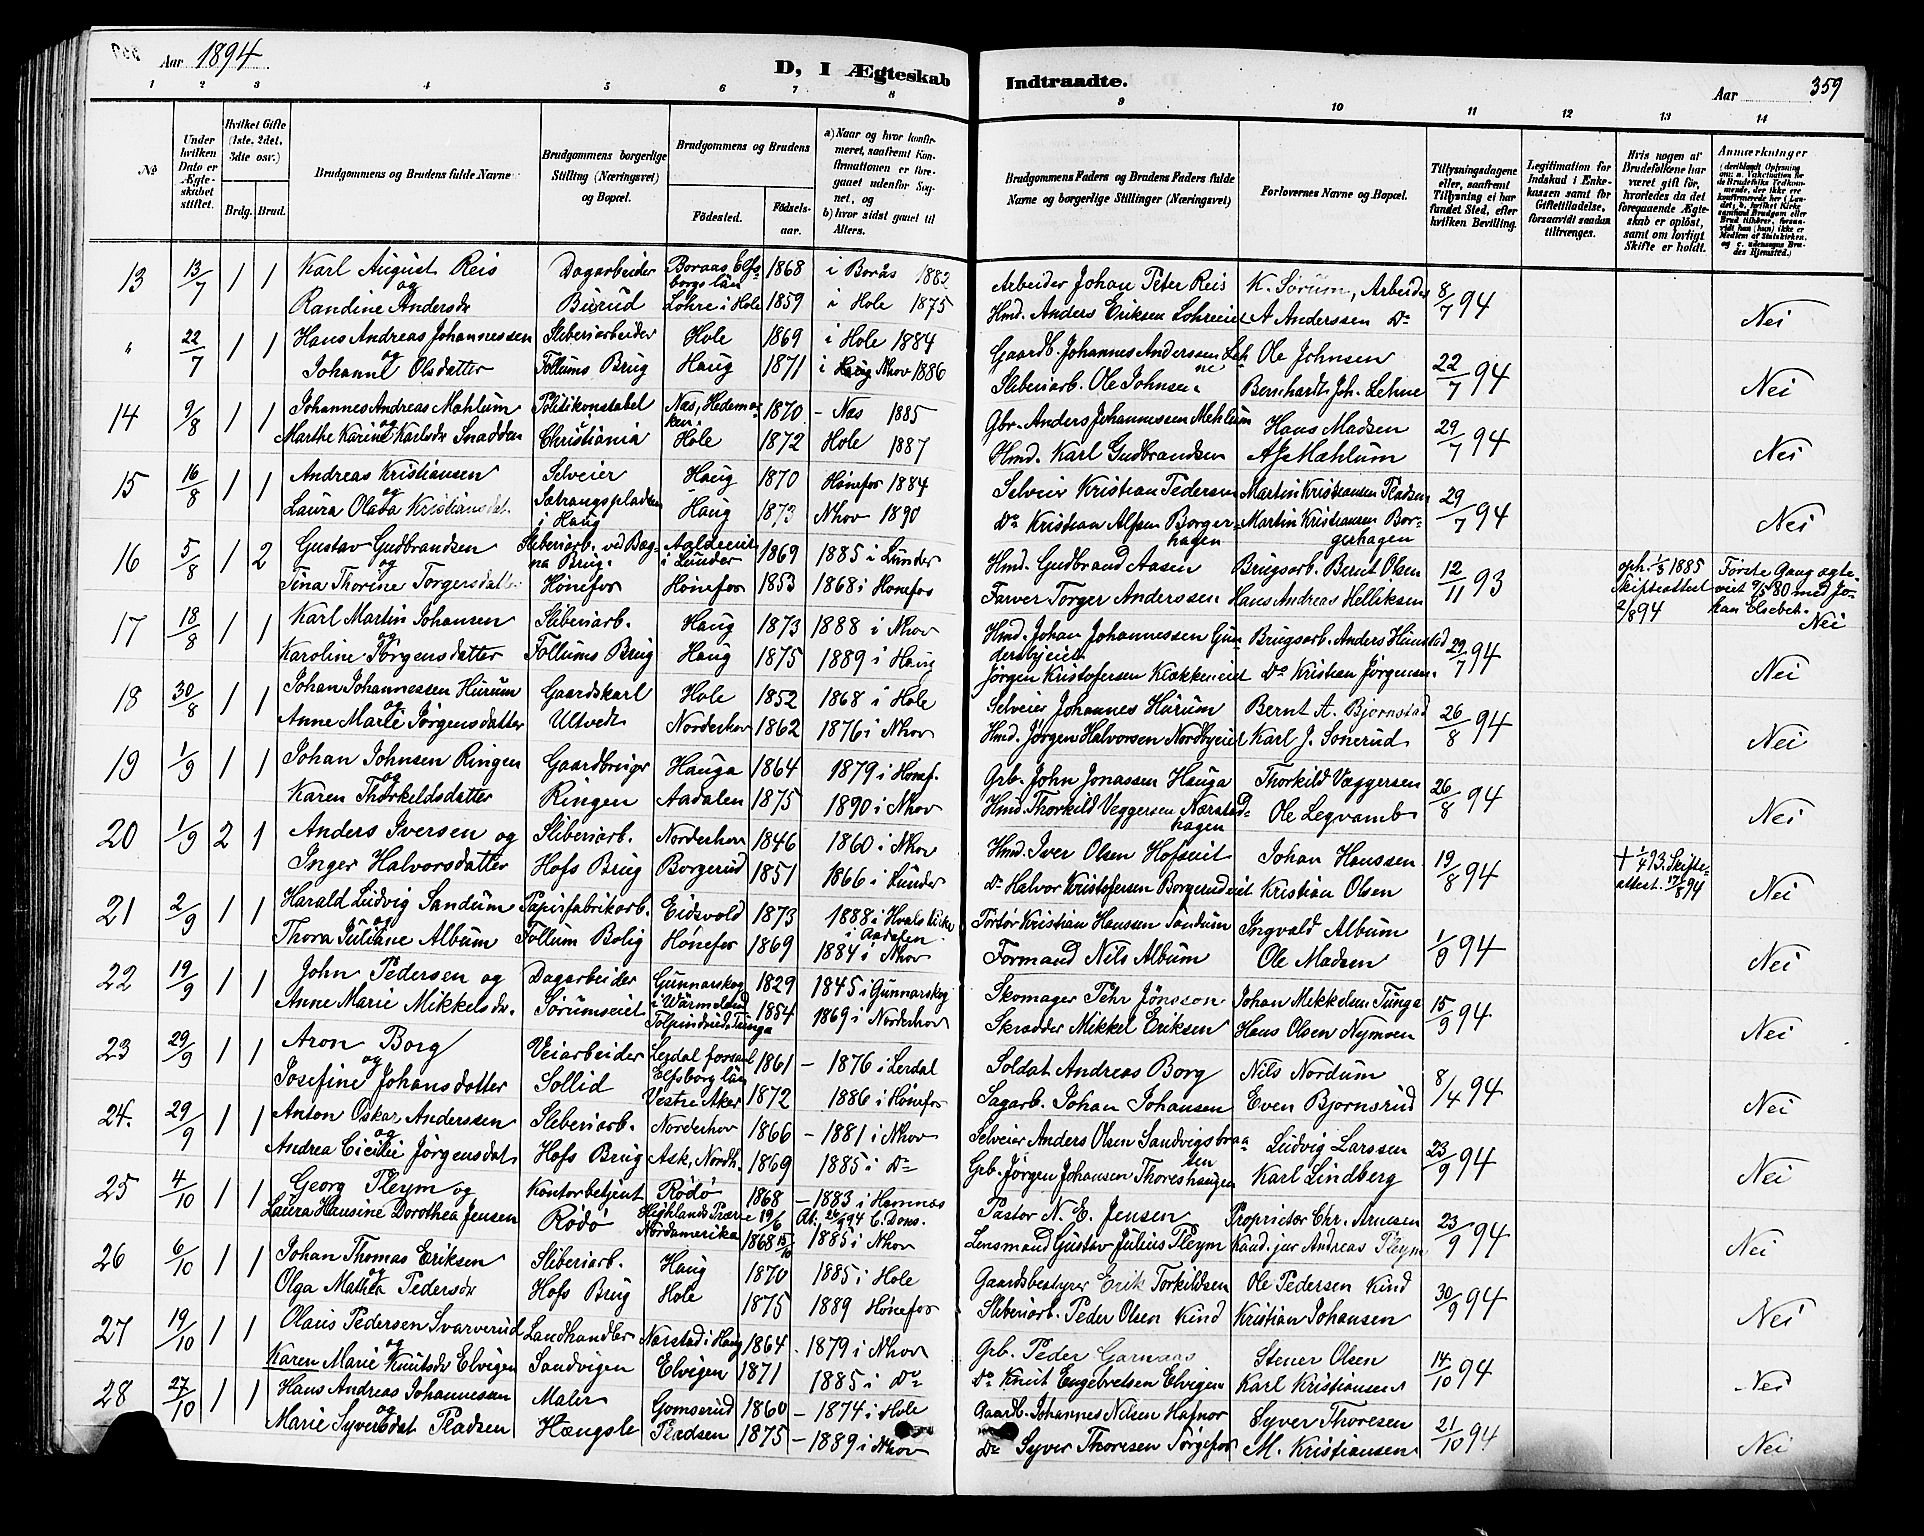 Aar 1894
D, I Ægteskab Indtraadte.
Aar 359
1 2 3 4 5 6 7 8 9 10 11 12 13 14
No
Under hvilken Dato er Ægteskabet stiftet.
Hvilket Gifte (1ste, 2det, 3dte osv.)
Brdg. Brud.
Brudgommens og Brudens fulde Navne
Brudgommens borgerlige Stilling (Næringsvei) og Bopæl.
Brudgommens og Brudens
Fødested. Fødselsaar.
a) Naar og hvor konfirmeret, saafremt Konfirmationen er foregaaet udenfor Sognet, og
b) hvor sidst gaaet til Alters.
Brudgommens Faders og Brudens Faders fulde Navne og borgerlige Stillinger (Næringsvei)
Forlovernes Navne og Bopæl.
Tillysningsdagene eller, saafremt Tillysning ei har fundet Sted, efter hvilken Bevilling.
Legitimation for Indskud i Enkekassen samt for Giftetilladelse, forsaavidt saadan tiltrænges.
Hvis nogen af Brudefolkene har været gift før, hvorledes da det foregaaende Ægteskab er opløst, samt om lovligt Skifte er holdt.
Anmærkninger
13 13/7 1 1 Karl August Reis Dagarbeider Boraas Elfsborgs län 1868 i Borås 1883 Arbeider Johan Peter Reis K. Sørum, Arbeider 8/7 94
og Randine Andersdr Busrud Lohre i Hole 1859 i Hole 1875 Hmd. Anders Eriksen Lohreeiet A Anderssen Do Nei
" 22/7 1 1 Hans Andreas Johannessen Sliberiarbeider Hole 1869 i Hole 1884 Gaardb. Johannes Anderssen Lehne Ole Johnsen 22/7 94
og Johanne Olsdatter Follums Brug Haug 1871 i Nhov 1886 Sliberiarb. Ole Johnsen Bernhardt Joh. Lehne Nei
14 9/8 1 1 Johannes Andreas Mæhlum Politikonstabel Næs, Hedemarken 1870 - Næs 1885 Gbr. Anders Johannessen Mehlum Hans Madsen 29/7 94
og Marthe Karine Karlsdr Snadden Christiania Hole 1872 Hole 1887 Hmd. Karl Gudbrandsen A Mæhlum Nei
15 16/8 1 1 Andreas Kristiansen Selveier Haug 1870 Hønefos 1884 Selveier Kristian Pedersen Martin Kristiansen Pladsen 29/7 94
og Laura Olava Kristiansdat. Sætrangspladsen i Haug Haug 1873 Nhov 1890 Do Kristian Alfsen Borgerhagen Martin Kristiansen Borgerhagen Nei
16 5/8 1 2 Gustav Gudbrandsen Sliberiarb. ved Bagna Brug. i Lunder 1869 1885 i Lunder Hmd. Gudbrand Aasen Brugsarb. Bernt Olsen 12/11 93 oph. 1/3 1885 Skifteattest 2/8 94 Første Gang ægteviet 7/5 80 med Johan Elsebet.
og Tina Thorine Torgersdatter Hønefos Hønefos 1853 1868 i Hønefos Farver Torger Anderssen Hans Andreas Helliksen Nei
17 18/8 1 1 Karl Martin Johansen Sliberiarb. Haug 1873 1888 i Nhov Hmd. Johan Johannessen Gundersbyeiet Brugsarb. Anders Hamstad 29/7 94
og Karoline Jørgensdatter Follums Brug Haug 1875 1889 i Haug Jørgen Kristofersen Klækkeneiet Do Kristian Jørgensen. Nei
18 30/8 1 1 Johan Johannessen Hurum Gaardskarl Hole 1852 1868 i Hole Selveier Johannes Hurum Bernt A. Bjørnstad 26/8 94
og Anne Marie Jørgensdatter Ultvedt Norderhov 1862 1876 i Nhov Hmd. Jørgen Halvorsen Nordbyeiet Karl J. Sonerud Nei
19 1/9 1 1 Johan Johnsen Ringen Gaardbruger Hauga 1864 1879 i Hønef. Grb. John Jonassen Hauga Thorkild Væggersen 26/8 94
og Karen Thorkildsdatter Ringen Aadalen 1875 1890 i Nhov Hmd. Thorkild Veggersen Nærstadhagen Ole Legvamb Nei
20 1/9 2 1 Anders Iversen og Sliberiarb. Norderhov 1846 1860 i Nhov Hmd. Iver Olsen Hofseiet Johan Hanssen 19/8 94 † 1/4 93. Skifteattest. 17/8 94
Inger Halvorsdatter Hofs Brug Borgerud 1851 1866 i Lunder Do Halvor Kristofersen Borgerudeiet Kristian Olsen Nei
21 2/9 1 1 Harald Ludvig Sandum Papirfabrikarb. Eidsvold 1873 1888 i Hvals kirke i Aadalen Kristian Hanssen Sandum Ingvald Album 1/9 94
og Thora Juliane Album Follum Bolig Hønefos 1869 1884 i Nhov Formand Nils Album Ole Madsen Nei
22 19/9 1 1 John Pedersen og Dagarbeider Gunnarskog i Wärmeland 1829 1845 i Gunnarskog Skomager Pehr Jönsson Johan Mikkelsen Tunga 15/9 94
Anne Marie Mikkelsdr. Sørumseiet Tolpinrud Tunga 1854 1869 i Norderhov Skrædder Mikkel Eriksen Hans Olsen Nymoen Nei
23 29/9 1 1 Aron Borg Veiarbeider Lerdal forsaml Elfsborg län 1861 - 1876 i Lerdal Soldat Andreas Borg Nils Nordum 8/4 94
og Josefine Johansdatter Sollid Vestre Aker 1872 1886 i Hønefos Sagarb. Johan Johansen Even Bjørnsrud Nei
24. 29/9 1 1 Anton Oskar Anderssen Sliberiarb. Norderhov 1866 - 1881 i Nhov Selveier Anders Olsen Sandvigsbraaten Ludvig Larssen 23/9 94
og Andrea Cicilie Jørgensdat. Hofs Brug Ask, Nordh. 1869 1885 i Do Grb. Jørgen Johansen Thoreshaugen Karl Lindberg Nei
25 4/10 1 1 Georg Pleym og Kontorbetjent Rödö 1868 19/6 - 1883 i Hemnæs Pastor N. E. Jensen Proprietær Chr. Arnesen 23/9 94
Laura Hansine Dorothea Jensen Rödö Highlands Prærie Nordamerika 1868 15/10 Al. 26/9 94 C. Dons. 1885 i Nhov Lensmand Gustav Julius Pleym Kand. jur Andreas Pleym Nei
26 6/10 1 1 Johan Thomas Eriksen Sliberiarb. Haug 1870 1885 i Hole Gaardsbestyrer Erik Torkildsen Ole Pedersen Kind 30/9 94
og Olga Mathea Pedersdr Hofs Brug Hole 1875 1889 Hønefos Sliberiarb. Peder Olsen Kind Kristian Johansen Nei
27 19/10 1 1 Olaus Pedersen Svarverud Landhandler Narstad i Haug 1864 - 1879 i Nhov Grb. Peder Garnaas Stener Olsen 14/10 94
og Karen Marie Knutsdr Elvigen Sandvigen Elvigen 1871 1885 i Do Do Knut Engebretsen Elvigen Karl Kristiansen Nei
28 27/10 1 1 Hans Andreas Johannesen Maler Gomserud 1860 - 1874 i Hole Gaardb. Johannes Nilsen Hafnor Syver Thoresen 21/10 94
og Marie Syversdat Pladsen Hængsle Pladsen 1875 - 1889 i Nhov Do Syver Thoresen Tørgefos M. Kristiansen Nei